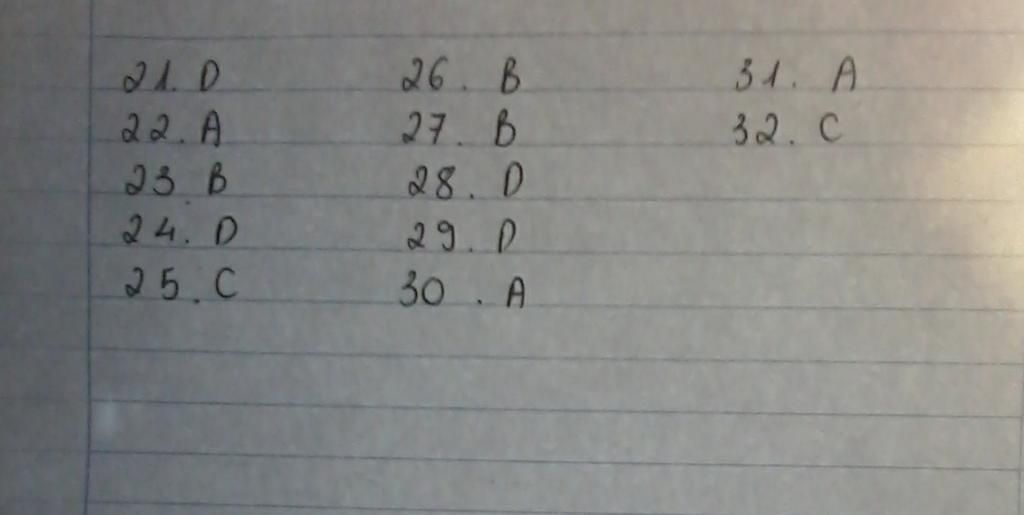 21. D
22. A
23. B
24. D
25. C
26. B
27. B
28. D
29. D
30. A
31. A
32. C